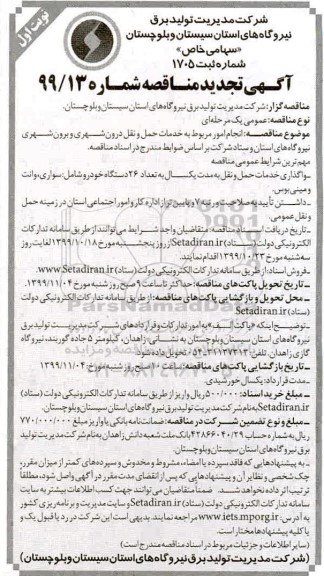 نوبت اول
شرکت مدیریت تولید برق
نیروگاه های استان سیستان وبلوچستان
«سهامی خاص»
شماره ثبت ۱۷۰۵
آگهی تجدید مناقصه شماره ۹۹/۱۳
مناقصه گزار: شرکت مدیریت تولید برق نیروگاه های استان سیستان وبلوچستان.
نوع مناقصه: عمومی یک مرحله ای
موضوع مناقصه: انجام امور مربوط به خدمات حمل و نقل درون شهری و برون شهری
نیروگاه های استان و ستاد شرکت بر اساس ضوابط مندرج در اسناد مناقصه.
مهم ترین شرایط عمومی مناقصه
-واگذاری خدمات حمل و نقل به مدت یکسال به تعداد ۲۶ دستگاه خودرو شامل: سواری، وانت
و مینی بوس.
-داشتن تأیید به صلاحیت و رتبه ۷ و پایین تر از اداره کار و امور اجتماعی استان در زمینه حمل و
نقل عمومی.
-تاریخ دریافت اسناد مناقصه: متقاضیان واجد شرایط می توانند از طریق سامانه تدارکات
الکترونیکی دولت (ستاد) Setadiran.ir از روز پنجشنبه مورخ ۱۳۹۹/۱۰/۱۸ لغایت روز
سه شنبه مورخ ۱۳۹۹/۱۰/۲۳ اقدام نمایند.
-فروش اسناد: از طریق سامانه تدارکات الکترونیکی دولت (ستاد) www.Setadiran.ir
-تاریخ تحویل پاکت های مناقصه: حداکثر تا ساعت ۹ صبح روز شنبه مورخ ۱۳۹۹/۱۱/۰۴.
-محل تحویل و بازگشایی پاکت های مناقصه: از طریق سامانه تدارکات الکترونیکی دولت
(ستاد) Setadiran.ir
-توضیح اینکه «پاکت الف» به امور تدارکات و قراردادهای شرکت مدیریت تولید برق
نیروگاه های استان سیستان وبلوچستان به نشانی: زاهدان، کیلومتر ۵ جاده گوربند، نیروگاه
گازی زاهدان. تلفن: ۳۱۱۳۷۳۱۳-۰۵۴ تحویل داده شود.
-تاریخ بازگشایی پاکت های مناقصه: ساعت ۱۰ صبح روز شنبه مورخ ۱۳۹۹/۱۱/۰۴
-مدت قرارداد: یکسال خورشیدی.
-مبلغ خرید اسناد: ۵۰۰/۰۰۰ ریال واریز از طریق سامانه تدارکات الکترونیکی دولت (ستاد)
Setadiran.ir به نام شرکت مدیریت تولید برق نیروگاه های استان سیستان وبلوچستان.
-مبلغ و نوع تضمین شرکت در مناقصه: ضمانت نامه بانکی یا واریز مبلغ ۷۷۰/۰۰۰/۰۰۰
ریال به شماره حساب ۴۲۸۶۶۰۴۰/۲۹ بانک ملت شعبه دانش زاهدان به نام شرکت مدیریت تولید
برق نیروگاه های استان سیستان وبلوچستان.
-به پیشنهادهایی که فاقد سپرده یا امضاء، مشروط و مخدوش و سپرده های کمتر از میزان مقرر،
چک شخصی و نظایر آن و پیشنهادهایی که پس از انقضای مدت مقرر در آگهی واصل شود، مطلقاً
ترتیب اثر داده نخواهد شد. ضمناً متقاضیان می توانند جهت کسب اطلاعات بیشتر به سایت
الکترونیکی دولت (ستاد) Setadiran.ir و سایت مدیریت و برنامه ریزی کشور
به آدرس: www.iets.mporg.ir مراجعه نمایند. بدیهی است این شرکت در رد یا قبول یک و
یا کلیه پیشنهادها مختار است.
(سایر اطلاعات و جزئیات مربوط در اسناد مناقصه مندرج است)
(شرکت مدیریت تولید برق نیروگاه های استان سیستان وبلوچستان)